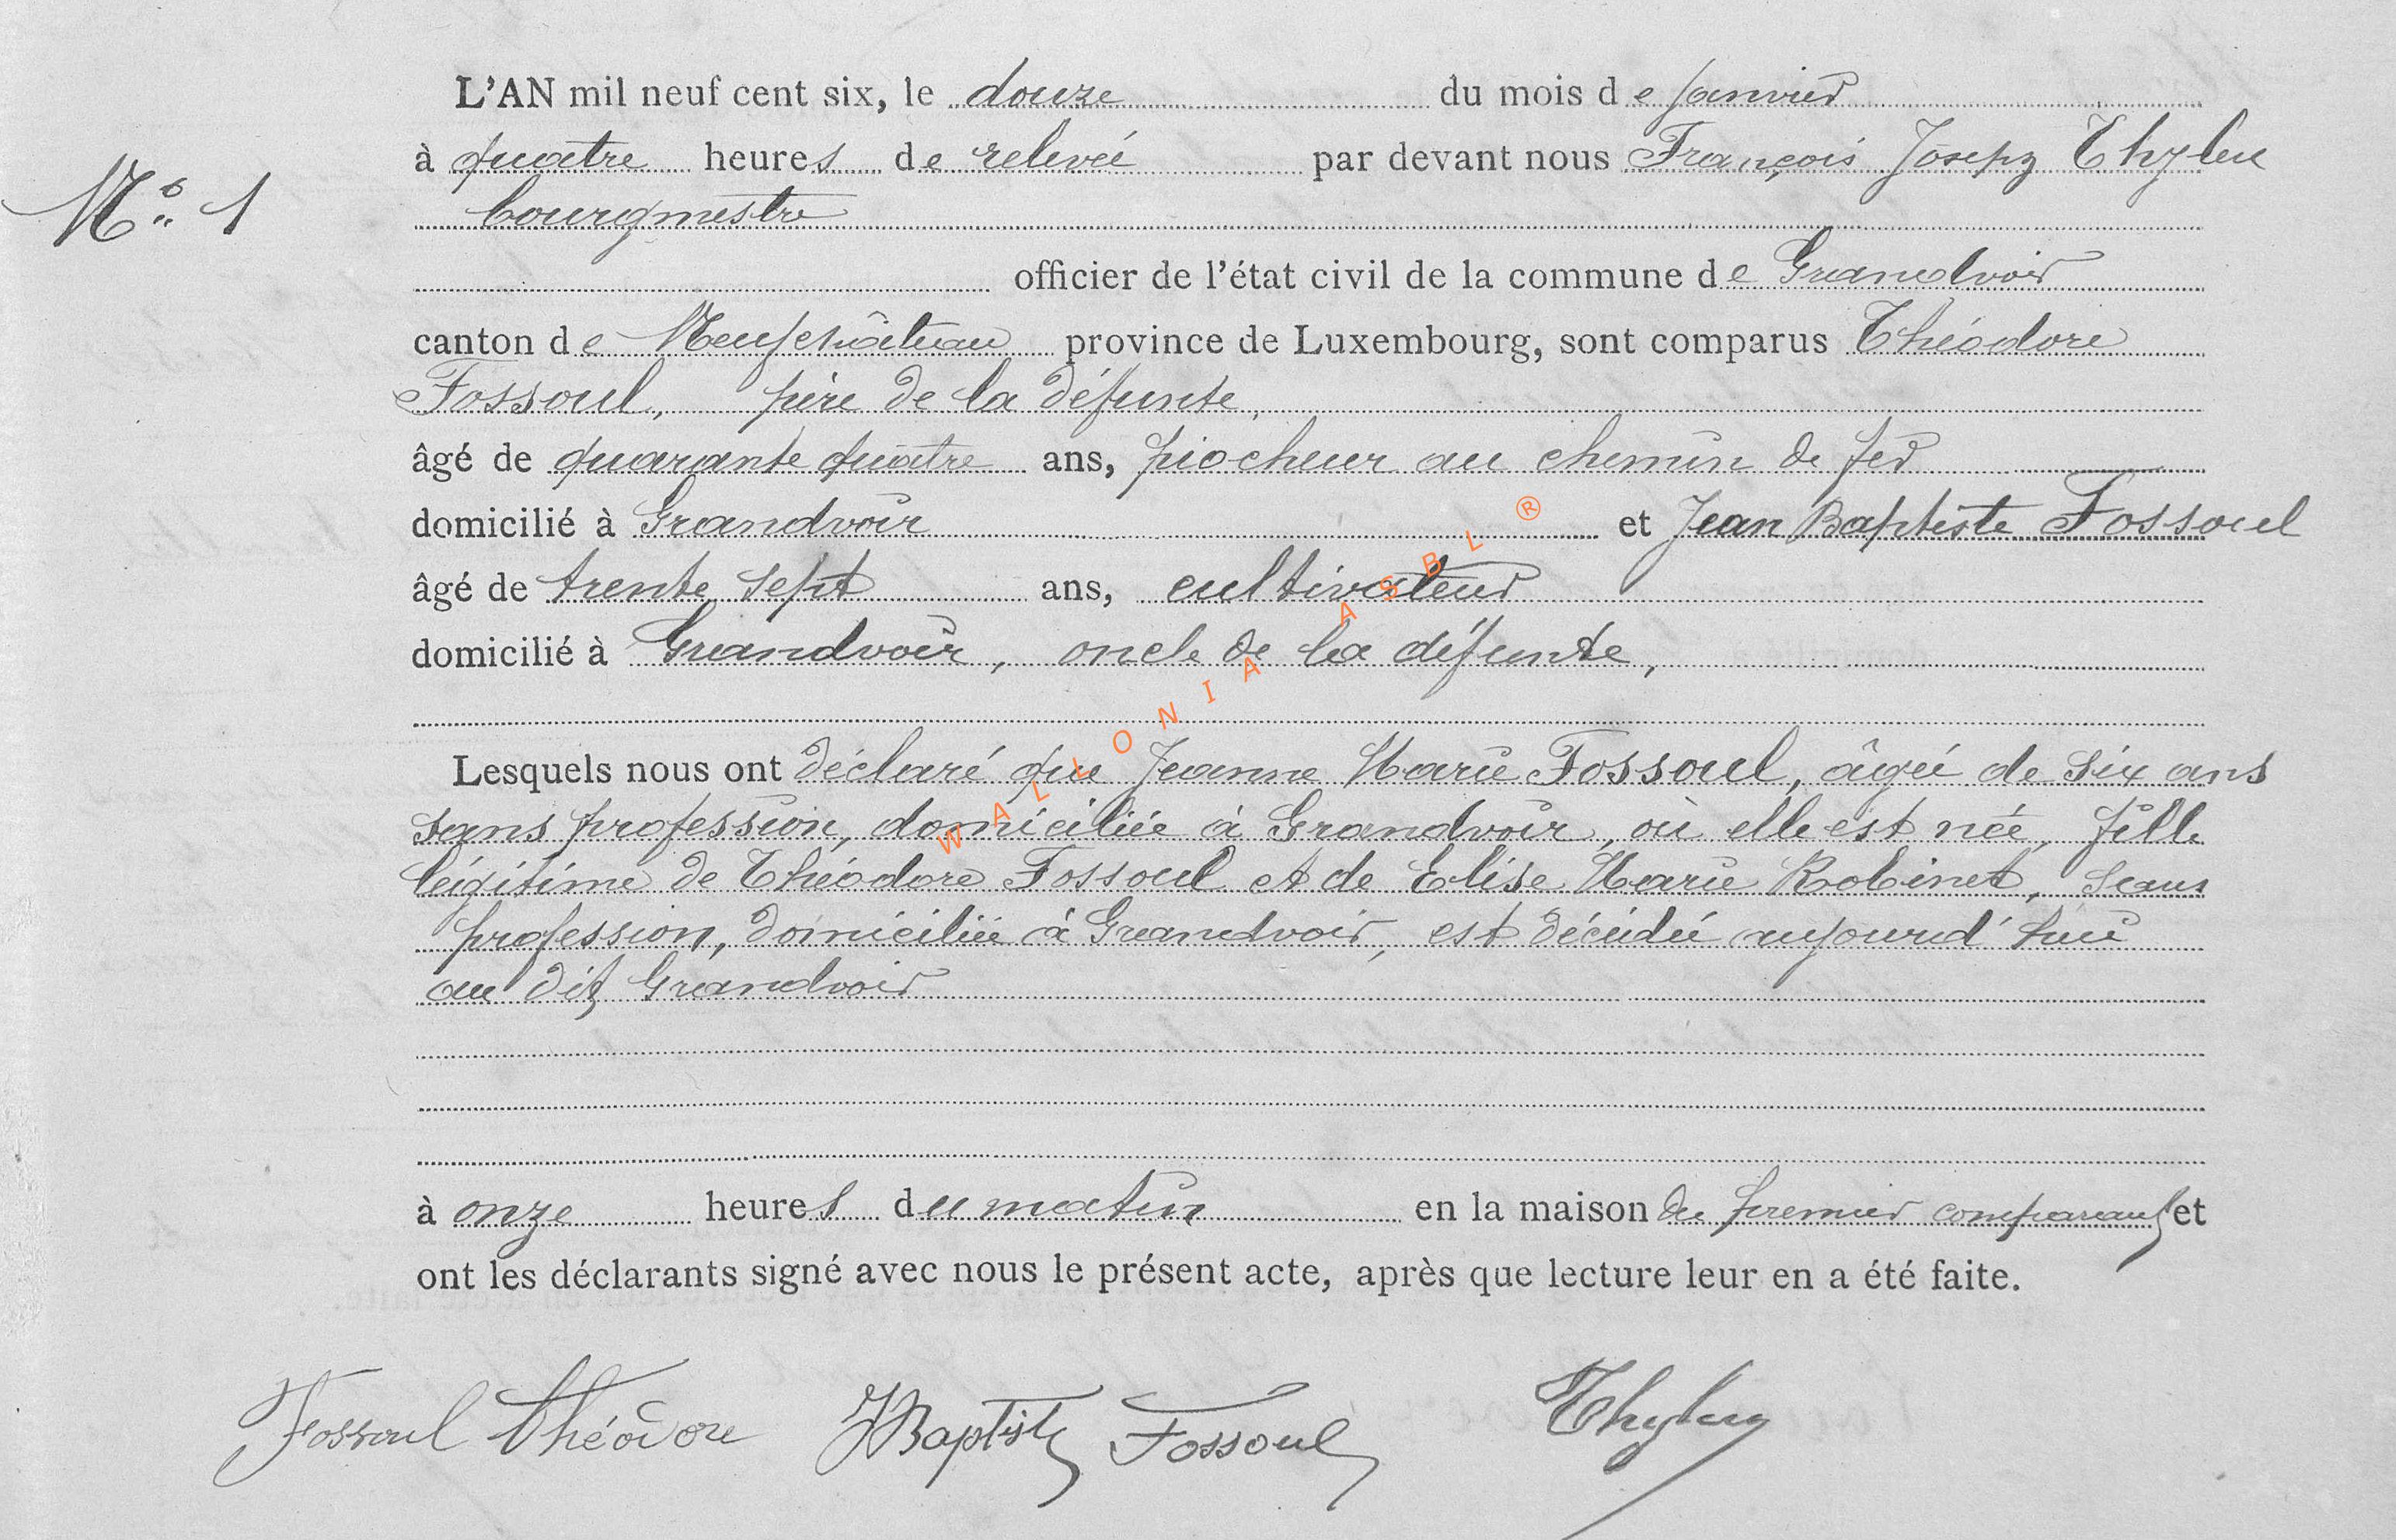 L'AN mil neuf cent six, le douze du mois de Janvier
à quatre heures de relevée par devant nous François Joseph
N° 1
bourgmestre
officier de l'état civil de la commune de Grandvoir
canton de Neufchâteau province de Luxembourg, sont comparus Théodore
Fossoul, père de la défunte,
âgé de quarante quatre ans, piocheur au chemin de fer
domicilié à Grandvoir et Jean Baptiste Fossoul
âgé de trente sept ans, cultivateur
domicilié à Grandvoir, oncle de la défunte,
Lesquels nous ont déclaré que Jeanne Marie Fossoul, âgée de six ans
sans profession, domiciliée à Grandvoir, où elle est née, fille
légitime de Théodore Fossoul et de Elise Marie Robinet, sans
profession, domiciliée à Grandvoir, est décédée aujourd'hui
au dit Grandvoir
à onze heures du matin en la maison du premier comparant et
ont les déclarants signé avec nous le présent acte, après que lecture leur en a été faite.
Fossoul Théodore JBaptiste Fossoul
WALLONIA ASBL ®